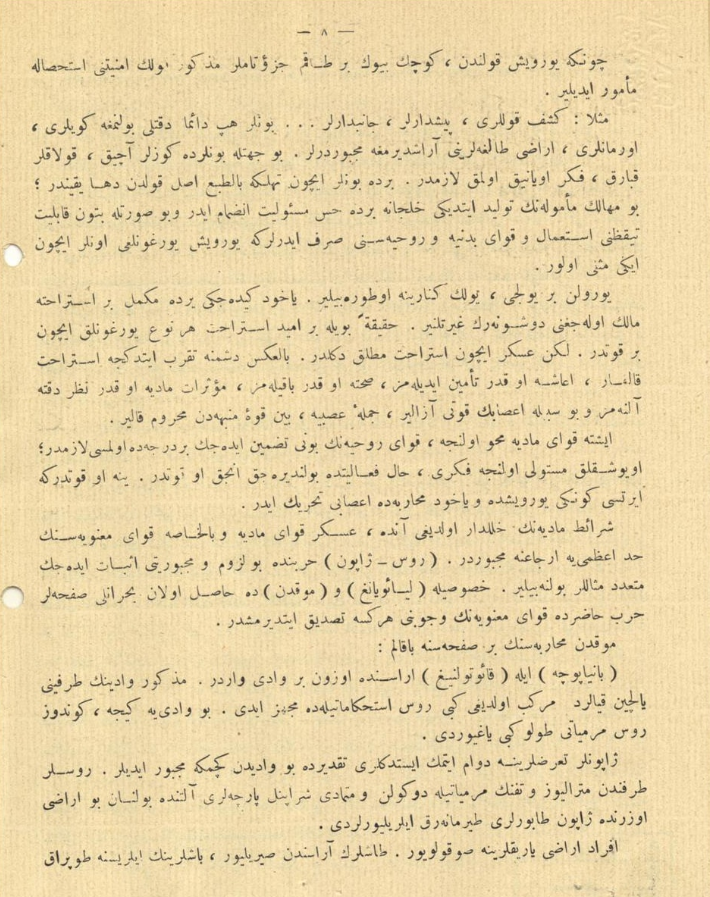 — ٨ —
چونكه يورويش قولندن ، كوچك بيوك بر طاقم جزؤتاملر مذكور يولك امنيتنى استحصاله
مأمور ايديلير .
مثلا : كشف قوللرى ، پيشدارلر ، جانبدارلر ... بونلر هپ دائما دقتلى بولنمغه كويلرى ،
اورمانلرى ، اراضى طالغه‌لرينى آراشديرمغه مجبوردرلر . بو جهتله بونلرده كوزلر آچيق ، قولاقلر
قبارق ، فكر اويانيق اولمق لازمدر . برده بونلر ايچون تهلكه بالطبع اصل قولدن دها يقيندر ؛
بو مهالك مأموله‌نك توليد ايتديكى خلجانه برده حس مسئوليت انضمام ايدر وبو صورتله بتون قابليت
تيقظنى استعمال و قواى بدنيه و روحيه‌سنى صرف ايدرلركه يورويش يورغونلغى اونلر ايچون
ايكى مثلى اولور .
يورولن بر يولجى ، يولك كنارينه اوطوره‌بيلير . ياخود كيده‌جكى يرده مكمل بر استراحته
مالك اوله‌جغنى دوشونه‌رك غيرتلنير . حقيقةً بويله بر اميد استراحت هر نوع يورغونلق ايچون
بر قوتدر . لكن عسكر ايچون استراحت مطلق دكلدر . بالعكس دشمنه تقرب ايتدكجه استراحت
قالقار ، اعاشه او قدر تأمين ايديله‌مز ، صحته او قدر باقيله‌مز ، مؤثرات ماديه او قدر نظر دقته
آلنه‌مز و بو سببله اعصابك قوتى آزالير ، جملهٔ عصبيه ، بين قوهٔ منبهه‌دن محروم قالير .
ايشته قواى ماديه محو اولنجه ، قواى روحيه‌نك بونى تضمين ايده‌جك بردرجه‌ده اولمسى لازمدر ؛
اويوشقلق مستولى اولنجه فكرى ، حال فعاليتده بولنديره‌جق انجق او قوتدر . ينه او قوتدركه
ايرتسى كونكى يورويشده و ياخود محاربه‌ده اعصابى تحريك ايدر .
شرائط ماديه‌نك خللدار اولديغى آنده ، عسكر قواى ماديه و بالخاصه قواى معنويه‌سنك
حد اعظمى‌يه ارجاعنه مجبوردر . ( روس – ژاپون ) حربنده بو لزوم و مجبوريتى اثبات ايده‌جك
متعدد مثاللر بولنه‌بيلير . خصوصيله ( ليائويانغ ) و ( موقدن ) ده حاصل اولان بحرانلى صفحه‌لر
حرب حاضرده قواى معنويه‌نك وجوبنى هركسه تصديق ايتديرمشدر .
موقدن محاربه‌سنك بر صفحه‌سنه باقالم :
( يانياپوچه ) ايله ( قائوتولينغ ) اراسنده اوزون بر وادى واردر . مذكور وادينك طرفينى
يالچين قيالردن مركب اولديغى كبى روس استحكاماتيله‌ده مجهز ايدى . بو وادى‌يه كيجه ، كوندوز
روس مرمياتى طولو كبى ياغيوردى .
ژاپونلر تعرضلرينه دوام ايتمك ايستدكلرى تقديرده بو واديدن كچمكه مجبور ايديلر . روسلر
طرفندن متراليوز و تفنك مرمياتيله دوكولن و متمادى شراپنل پارچه‌لرى آلتنده بولنان بو اراضى
اوزرنده ژاپون طابورلرى طيرمانه‌رق ايلريليورلردى .
افراد اراضى ياريقلرينه صوقوليور . طاشلرك آراسندن صيريليور ، باشلرينك ايلريسنه طوپراق